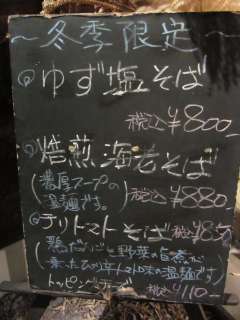 ～冬季限定～
◎ゆず塩そば
税込¥800-
◎焙煎海老そば
(濃厚スープの温麺です。)税込¥880-
◎チリトマトそば税込¥850
(鶏だんごと野菜の旨煮が
乗ったひり辛トマト味の温麺です)
トッピングチーズ 税込¥110-